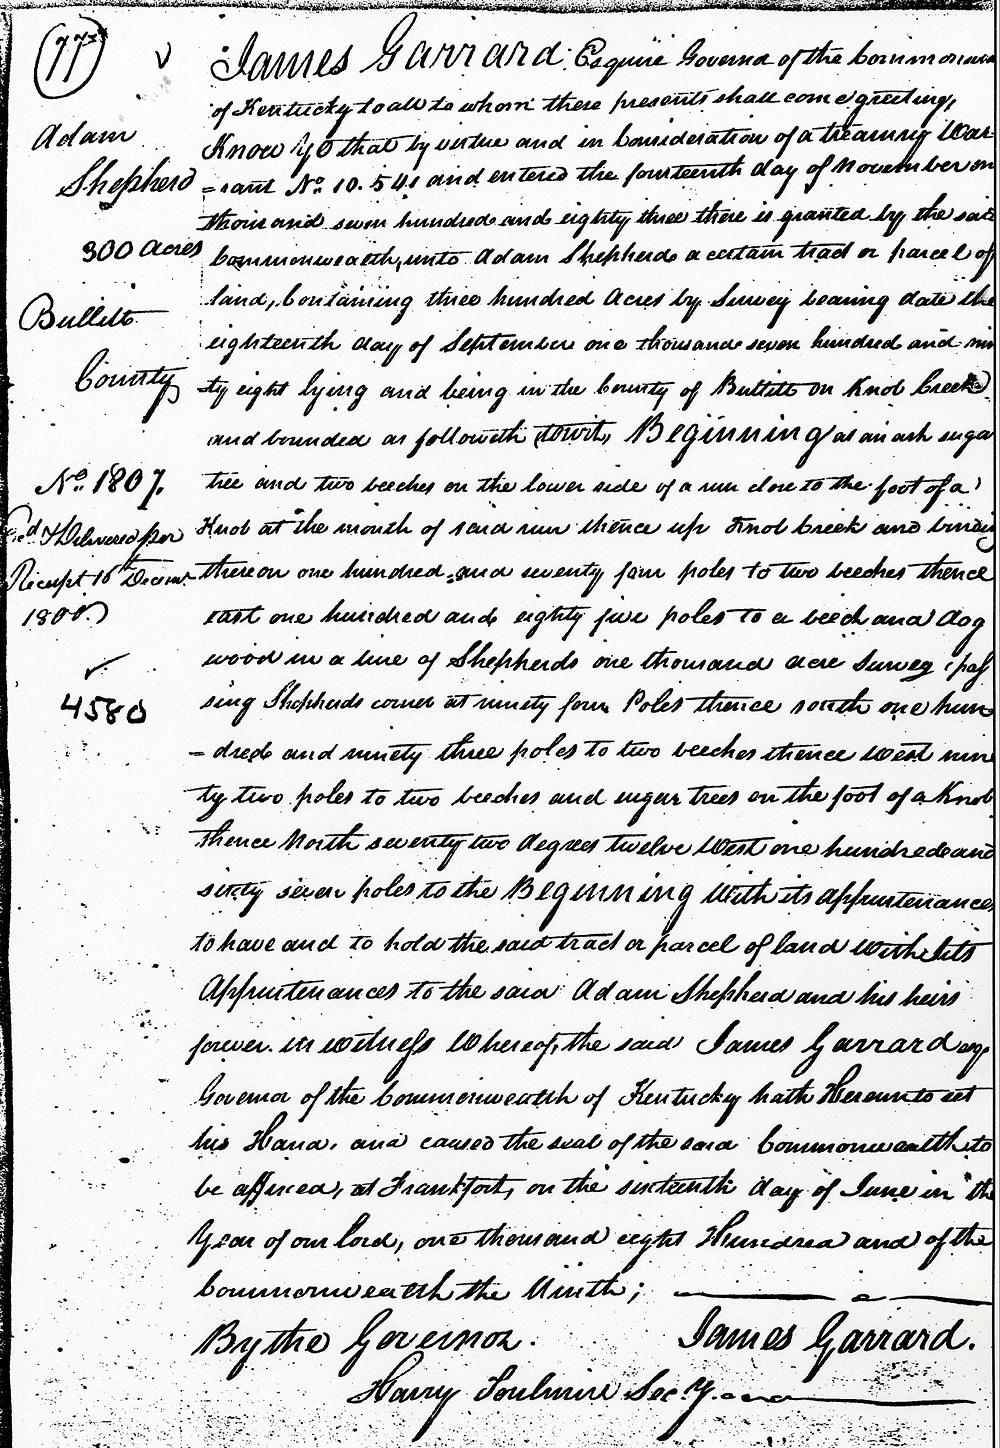 77
v
Adam
Shepherd
300 Acres
Bullitt
County
No. 1807.
Exd. & Delivered per
Receipt 16 Decemr
1800
4580
James Garrard Esquire Governor of the Commonwea
of Kentucky to all to whom these presents shall come greeting,
Know Ye that by virtue and in Consideration of a treasury War-
=rant No. 10.541 and entered the fourteenth day of November on
thousand seven hundred and eighty three there is granted by the said
Commonwealth, unto Adam Shepherd a certain tract or parcel of
land, Containing three hundred Acres by Survey bearing date the
eighteenth day of September one thousand seven hundred and nin
ty eight lying and being in the County of Bullitt on Knob Creek
and bounded as followeth towit, Beginning at an ash sugar
tree and two beeches on the lower side of a run close to the foot of a
Knob at the mouth of said run thence up Knob Creek and binding
thereon one hundred and seventy four poles to two beeches thence
east one hundred and eighty five poles to a beech and dog
wood in a line of Shepherds one thousand acre Survey (pas
sing Shepherds corner at ninety four Poles thence south one hun
=dred and ninety three poles to two beeches thence West nine
ty two poles to two beeches and sugar trees on the foot of a Knob
thence North seventy two degrees twelve West one hundred and
sixty seven poles to the Beginning With its appurtenances
to have and to hold the said tract or parcel of land with its
Appurtenances to the said Adam Shepherd and his heirs
forever. in witness Whereof, the said James Garrard esqr
Governor of the Commonwealth of Kentucky hath Hereunto set
his Hand, and caused the seal of the said Commonwealth to
be affixed, at Frankfort, on the sixteenth day of June in the
Year of our lord, one thousand eight Hundred and of the
Commonwealth the Ninth;
By the Governor. James Garrard.
Harry Toulmin Secy.